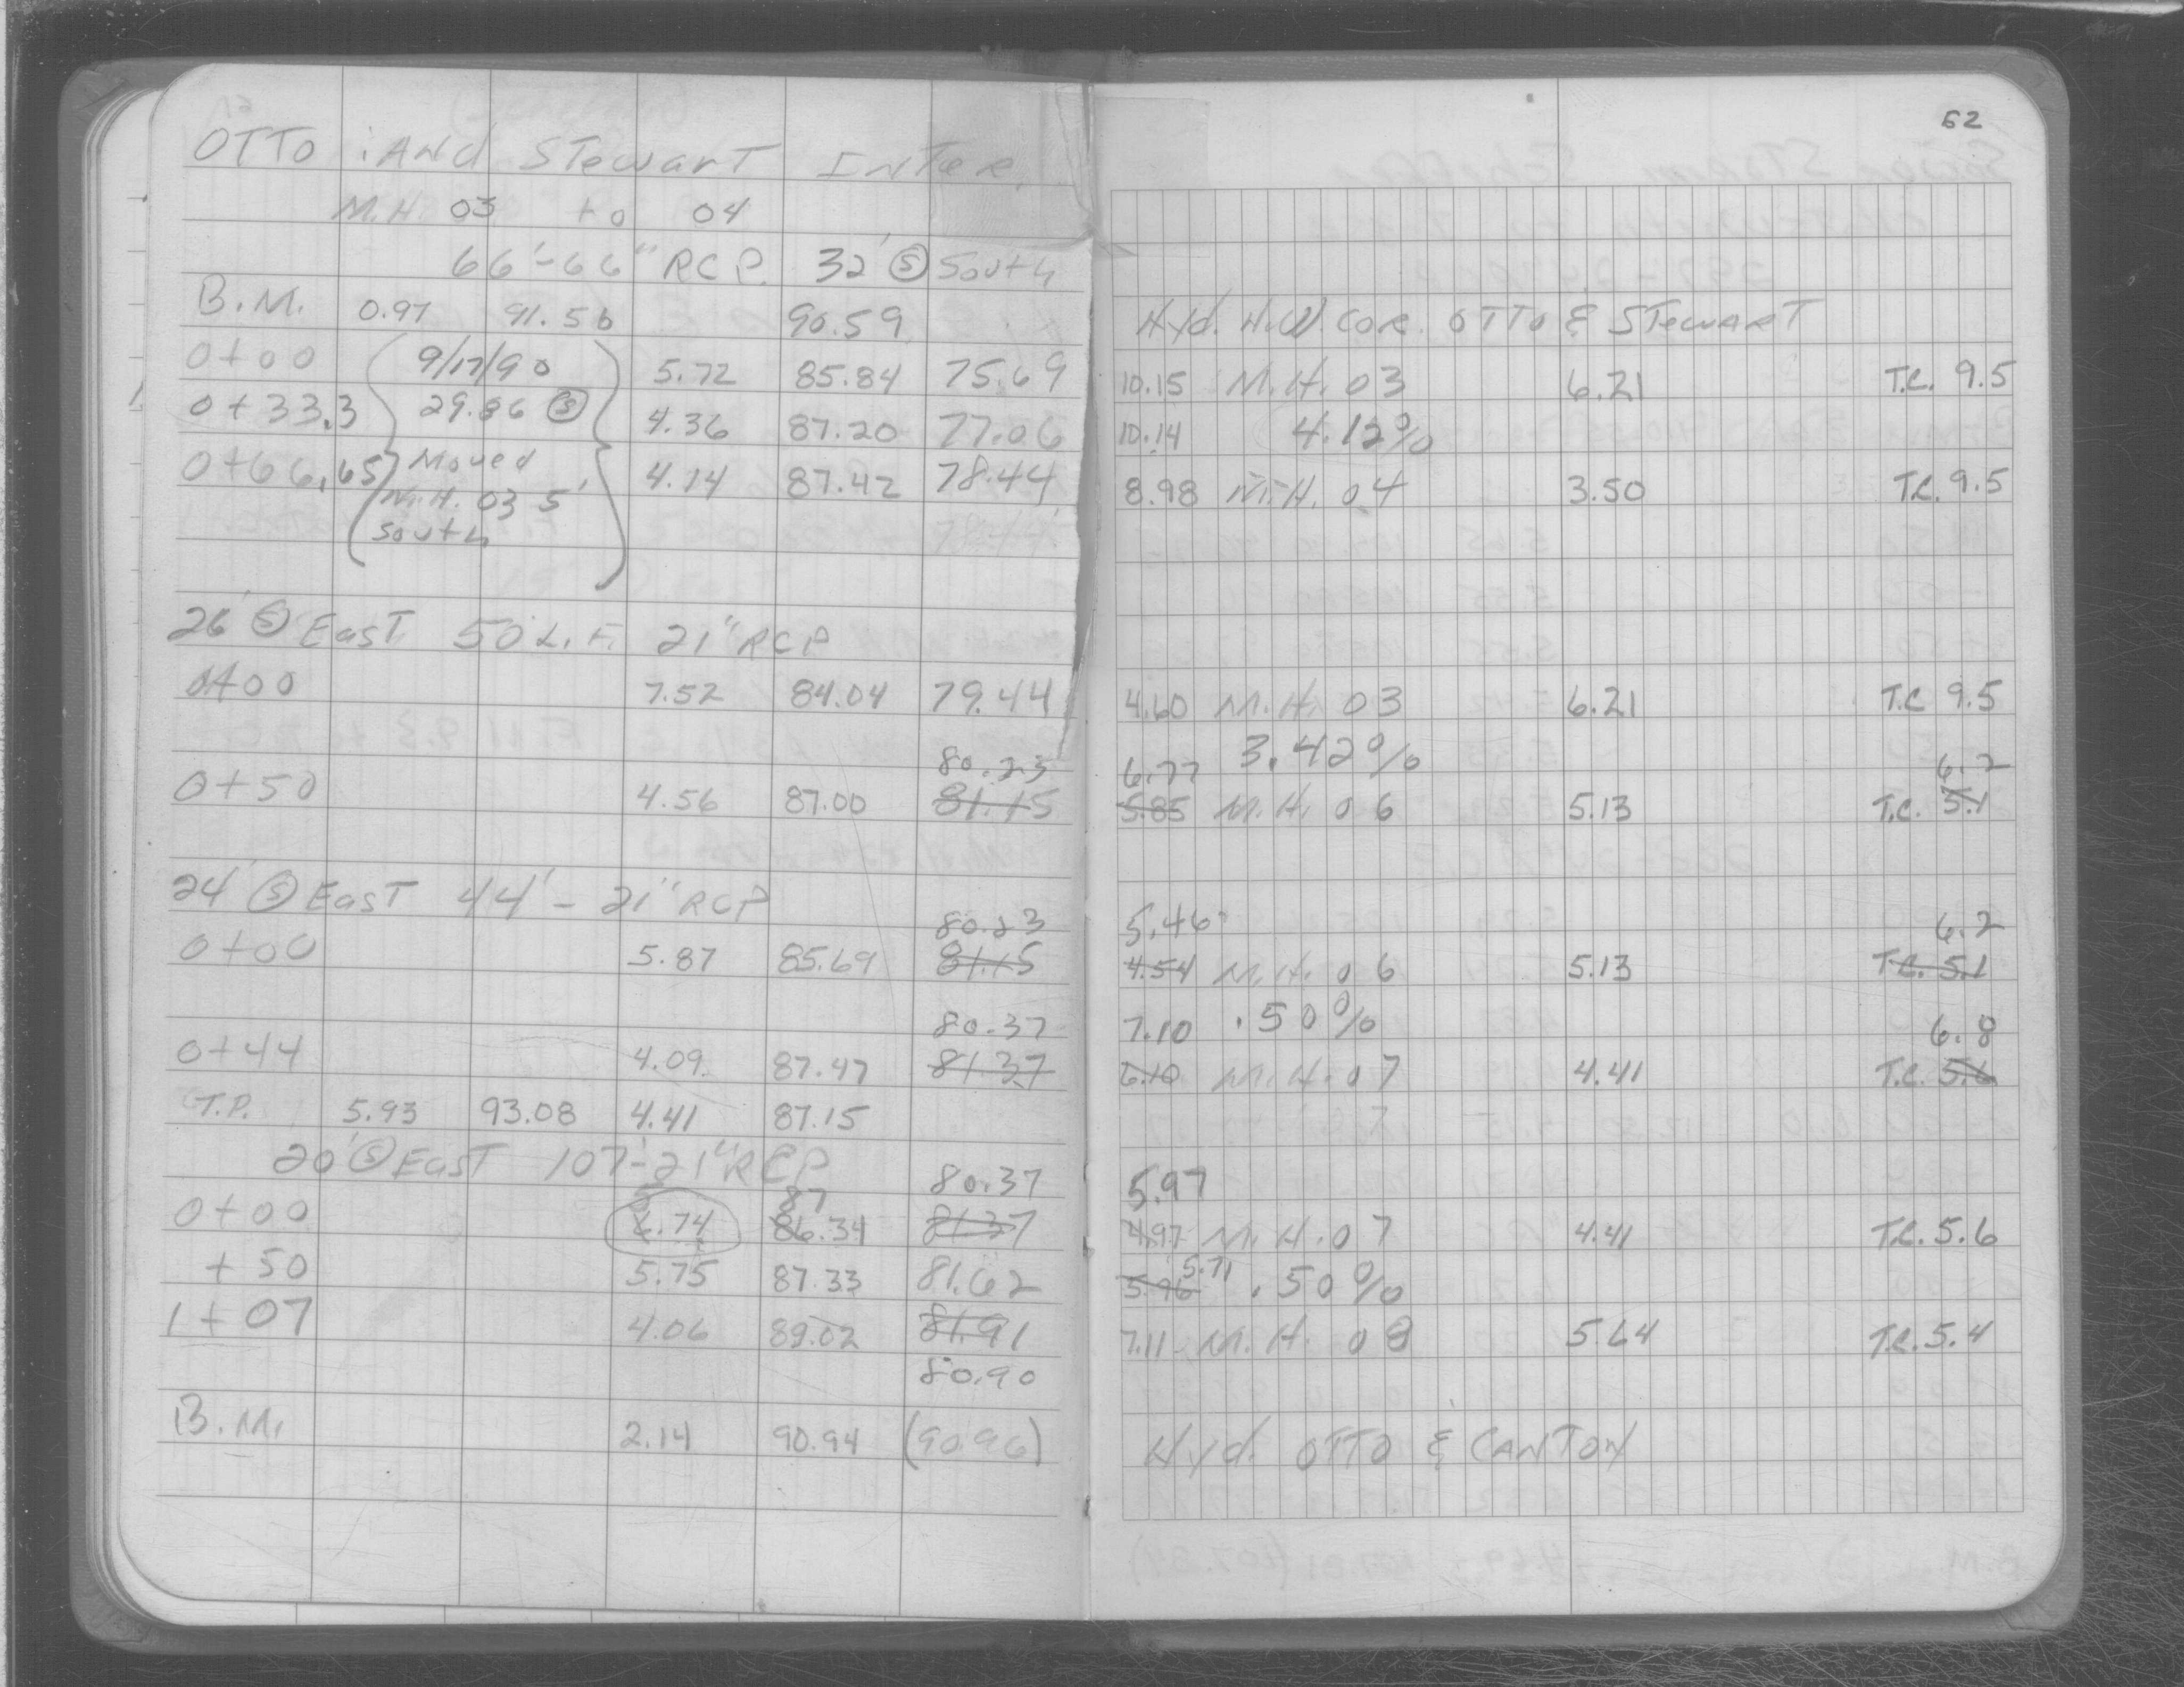 52
OTTO AND STEWART INTER.
M.H. 03 to 04
66'-66" RCP. 32' Ⓢ South
B.M. 0.97 91.56 90.59 Hyd. N.W. COR. OTTO & STEWART
0+00 9/17/90 5.72 85.84 75.69 10.15 M.H. 03 6.21 T.C. 9.5
0+33.3 29.86 Ⓢ 4.36 87.20 77.06 10.14 4.12%
0+66.65 Moved 4.14 87.42 78.44 8.98 M.H. 04 3.50 T.C. 9.5
M.H. 03 5'
South
26' Ⓢ EAST 50 L.F. 21" RCP
0+00 7.52 84.04 79.44 4.60 M.H. 03 6.21 T.C 9.5
80.23 6.77 3.42% 6.2
0+50 4.56 87.00 81.15 5.85 M.H. 06 5.13 T.C. 5.1
24' Ⓢ EAST 44' - 21" RCP
80.23 5.46 6.2
0+00 5.87 85.69 81.15 4.54 M.H. 06 5.13 T.C. 5.1
80.37 7.10 .50% 6.8
0+44 4.09 87.47 81.37 6.10 M.H. 07 4.41 T.C. 5.6
T.P. 5.93 93.08 4.41 87.15
20' Ⓢ EAST 107'-21" RCP
5 87 80.37 5.97
0+00 6.74 86.34 81.37 4.97 M.H. 07 4.41 T.C. 5.6
+50 5.75 87.33 81.62 5.96 5.71 .50%
1+07 4.06 89.02 81.91 7.11 M.H. 08 5.64 T.C. 5.4
80.90
B.M. 2.14 90.94 (90.96) Hyd. OTTO & CANTON